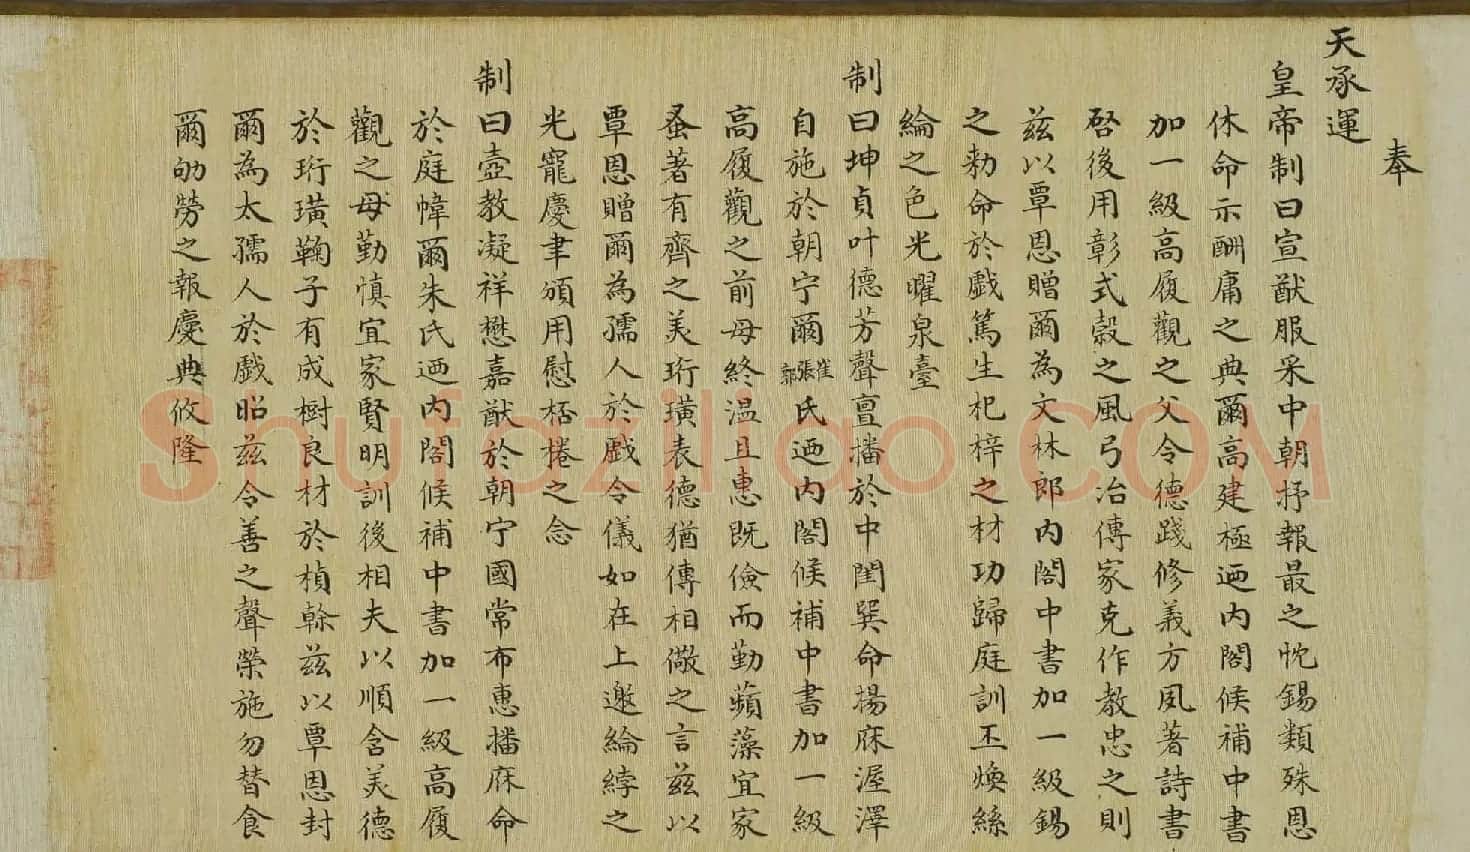 奉
天承運
皇帝制曰宣猷服采中朝抒報最之忱錫類殊恩
休命示酬庸之典爾高建極迺內閣候補中書
加一級高履觀之父令德踐修義方夙著詩書
啓後用彰式穀之風弓冶傳家克作教忠之則
茲以覃恩贈爾為文林郎內閣中書加一級錫
之勅命於戲篤生杞梓之材功歸庭訓丕煥絲
綸之色光曜泉臺
制曰坤貞叶德芳聲亶播於中閨巽命揚庥渥澤
自施於朝宁爾崔張郭氏迺內閣候補中書加一級
高履觀之前母終温且惠既儉而勤蘋藻宜家
蚤著有齊之美珩璜表德猶傳相儆之言茲以
覃恩贈爾為孺人於戲令儀如在上邀綸綍之
光寵慶聿頒用慰桮棬之念
制曰壼教凝祥懋嘉猷於朝宁國常布惠播庥命
於庭幃爾朱氏迺內閣候補中書加一級高履
觀之母勤慎宜家賢明訓後相夫以順含美德
於珩璜鞠子有成樹良材於楨榦茲以覃恩封
爾為太孺人於戲昭茲令善之聲榮施勿替食
爾劬勞之報慶典攸隆
Shufaziliao.COM